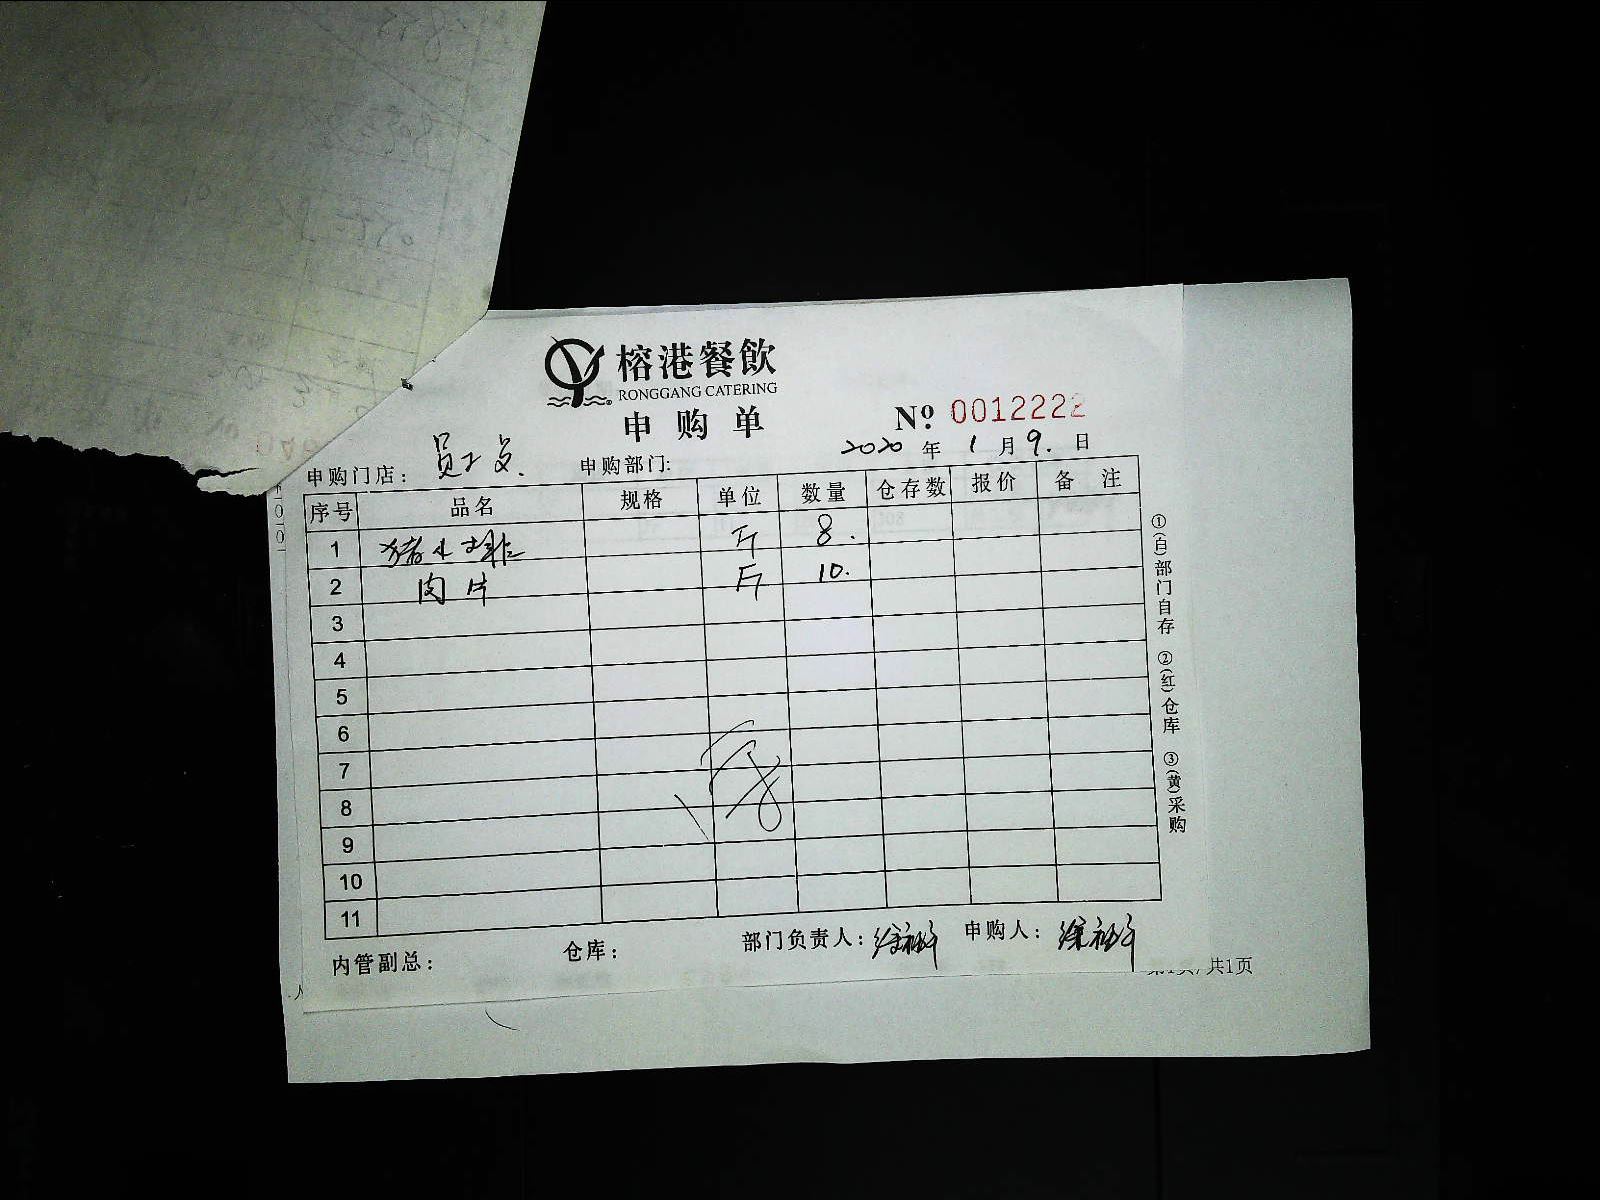 榕港餐飲
RONGGANG CATERING
申购单
№ 0012222
2020 年 1 月 9. 日
申购门店: 员工
申购部门:
序号 品名 规格 单位 数量 仓存数 报价 备 注
1 猪小排 斤 8.
2 肉片 斤 10.
3
4
5
6
7
8
9
10
11
内管副总: 仓库: 部门负责人: 申购人:
①(白)部门自存 ②(红)仓库 ③(黄)采购
共1页